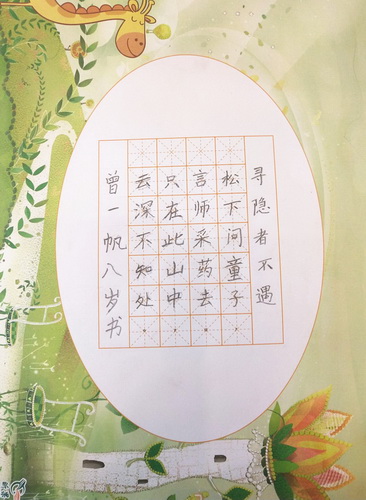 寻隐者不遇
松下问童子
言师采药去
只在此山中
云深不知处
曾一帆八岁书